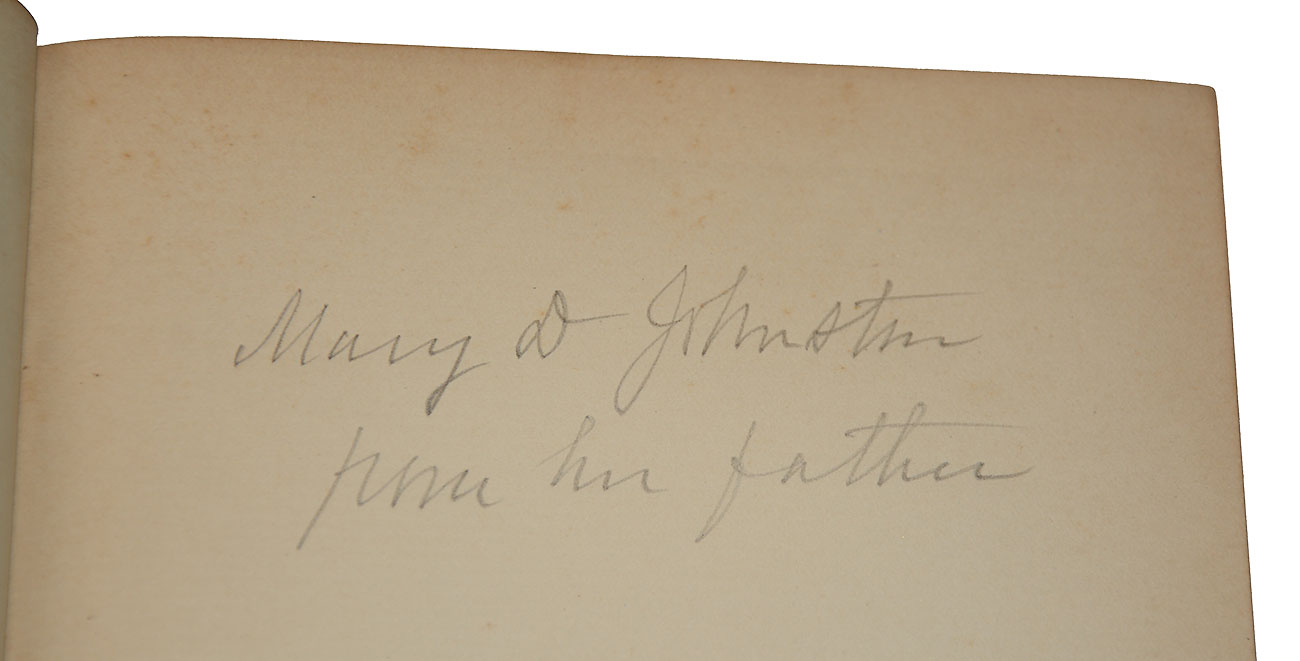 Mary D Johnston
from her father